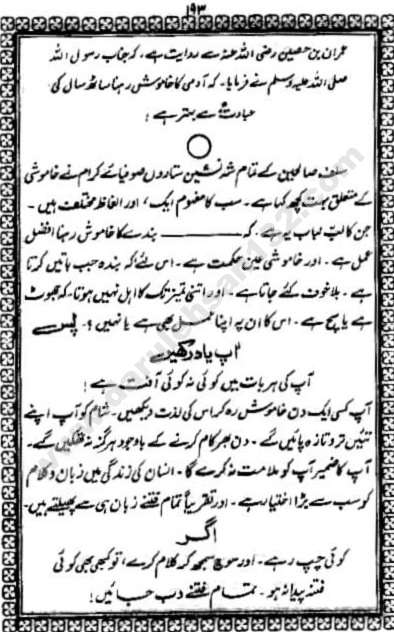 ۱۹۳
عمران بن حصین رضی اللہ عنہ سے روایت ہے، کہ جناب رسول اللہ
صلی اللہ علیہ وسلم نے فرمایا۔ کہ آدمی کا خاموش رہنا ساٹھ سال کی
عبادت سے بہتر ہے؛
سلف صالحین کے تمام شہ نشین ستاروں صوفیائے کرام نے خاموشی
کے متعلق بہت کچھ کہا ہے۔ سب کا مفہوم ایک، اور الفاظ مختلف ہیں۔
جن کا لب لباب یہ ہے۔ کہ ——— بندے کا خاموش رہنا افضل
عمل ہے۔ اور خاموشی عین حکمت ہے۔ اس لئے کہ بندہ جب باتیں کرتا
ہے۔ بلا خوف کئے جاتا ہے۔ اور اتنی تمیز تک کا اہل نہیں ہوتا۔ کہ جھوٹ
ہے یا سچ ہے۔ اس کا ان پر اپنا عمل بھی ہے یا نہیں؟۔ پس
آپ یاد رکھیں
آپ کی ہر بات میں کوئی نہ کوئی آفت ہے!
آپ کسی ایک دن خاموش رہ کر اس کی لذت دیکھیں۔ شام کو آپ اپنے
تئیں تر و تازہ پائیں گے۔ دن بھر کام کرنے کے باوجود ہرگز نہ تھکیں گے۔
آپ کا ضمیر آپ کو ملامت نہ کرے گا۔ انسان کی زندگی میں زبان و کلام
کو سب سے بڑا اختیار ہے۔ اور تقریباً تمام فتنے زبان ہی سے پھیلتے ہیں۔
اگر
کوئی چپ رہے۔ اور سوچ سمجھ کر کلام کرے، تو کبھی بھی کوئی
فتنہ پیدا نہ ہو۔ تمام فتنے دب جائیں!
www.darulehsan132.com